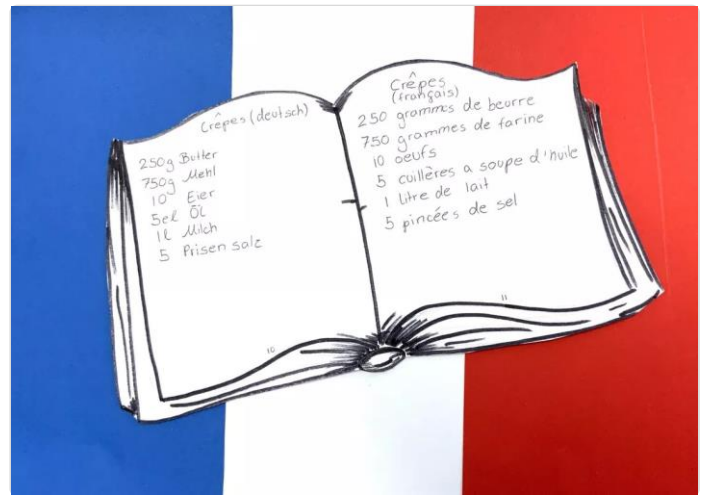 Crêpes (deutsch)
250g Butter
750g Mehl
10 Eier
5el Öl
1l Milch
5 Prisen salz
10
Crêpes
(français)
250 grammes de beurre
750 grammes de farine
10 oeufs
5 cuillères a soupe d'huile
1 litre de lait
5 pincées de sel
11